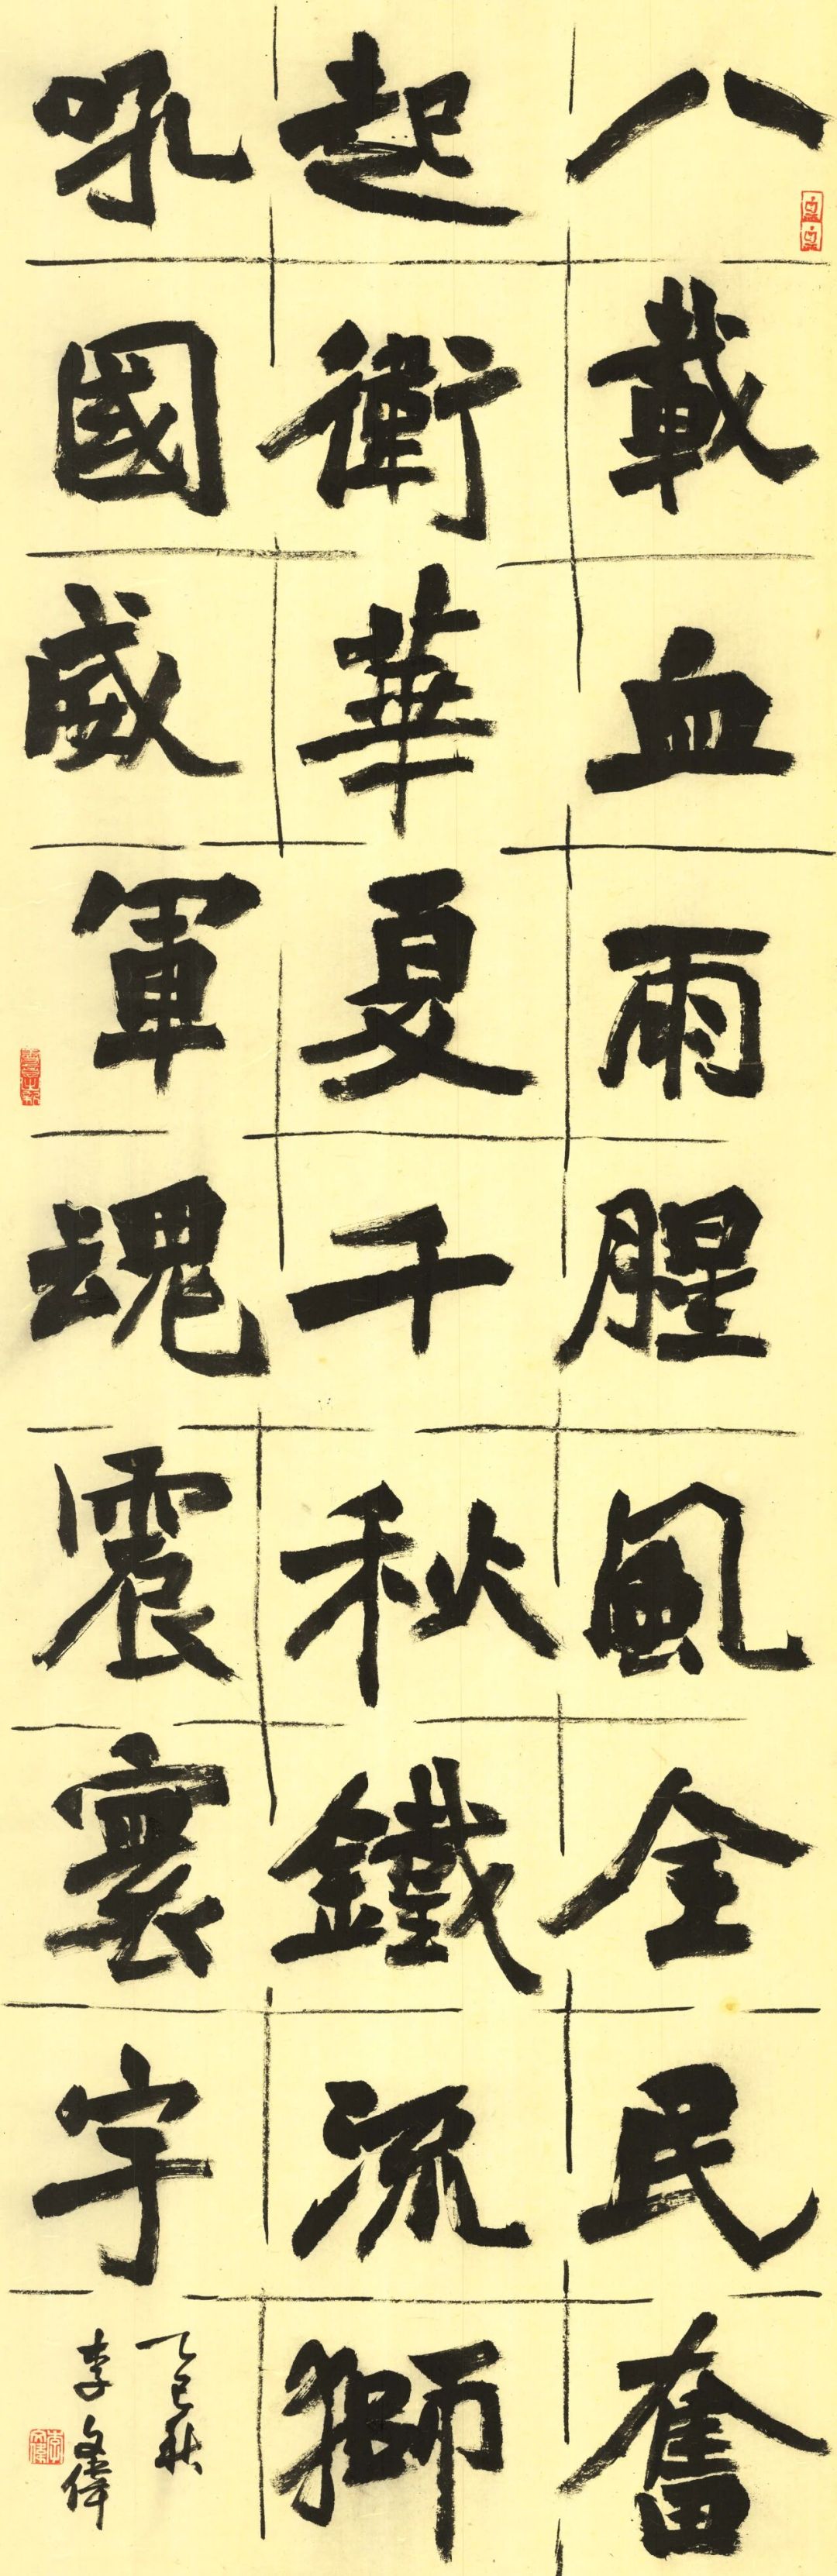 八載血雨腥風全民奮
起衛華夏千秋鐵流獅
吼國威軍魂震寰宇
乙巳秋
李文偉